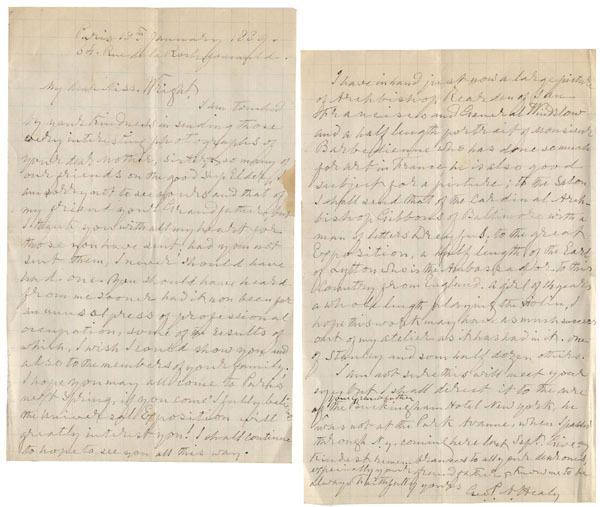 Paris 18th January, 1889.
54 Rue de la Rochefoucauld.
My dear Miss
I am touched
by your kindness in sending those
very interesting photographs of
your dear Mother, sister & so many of
our friends on the good Ship Elder, I
am sorry not to see yours and that of
my friend your Grandfather, but
I thank you with all my heart for
those you have sent, had you not
sent them, I never should have
had one. You should have heard
from me sooner had it not been for
an unusual press of professional
occupation, some of the results of
which, I wish I could show you and
also to the members of your family.
I hope you may all come to Paris
next Spring, if you come I fully
the universal Exposition will
greatly interest you! I shall continue
to hope to see you all this way.
I have in hand just now a large picture
of Archbishop Reardon of San
Francisco and General Winslow
and a half length portrait of monsieur
Barbedienne who has done so much
for art in France he is also good
subject for a picture; to the Salon
I shall send that of the Cardinal Arch-
bishop Gibbons of Baltimore with a
man of letters Dreyfus, to the great
Exposition, a half length of the Earl
of Lytton who is the Ambassador to this
Country from England. A girl of
a whole length playing the Violin, I
hope this work may have as much success
out of my atelier as it has had in it, one
of Stanley and some half dozen others.
I am not sure this will meet your
eyes but I shall direct it to the care
of your Grandfather
the Buckingham Hotel New York, he
was not at the Park Avenue, when I passed
through N.Y. coming here last Sept. Give my
kindest remembrances to all your dear ones,
especially your Grandfather & know me to be
always faithfully yours
Geo. P. A. Healy